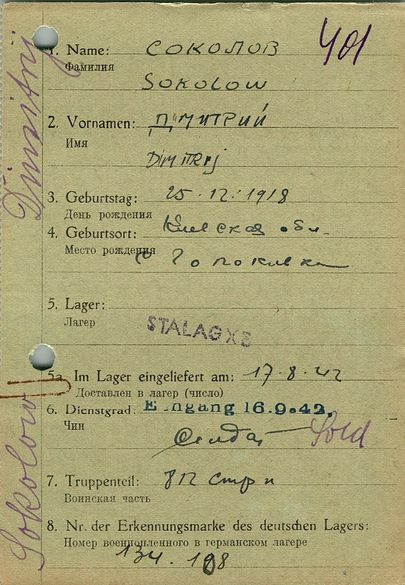 401
Dimitrij
Sokolow
1. Name: СОКОЛОВ
Фамилия
SOKOLOW
2. Vornamen: ДМИТРИЙ
Имя
Dimitrej
3. Geburtstag: 25.12.1918
День рождения
4. Geburtsort: Киевская обл.
Место рождения
5. Lager:
Лагерь
STALAG XB
5a. Im Lager eingeliefert am: 17.8.42
Доставлен в лагерь (число)
6. Dienstgrad: Eingang 16.9.42.
Чин
Солдат Sold
7. Truppenteil:
Воинская часть
8. Nr. der Erkennungsmarke des deutschen Lagers:
Номер военнопленного в германском лагере
134.108